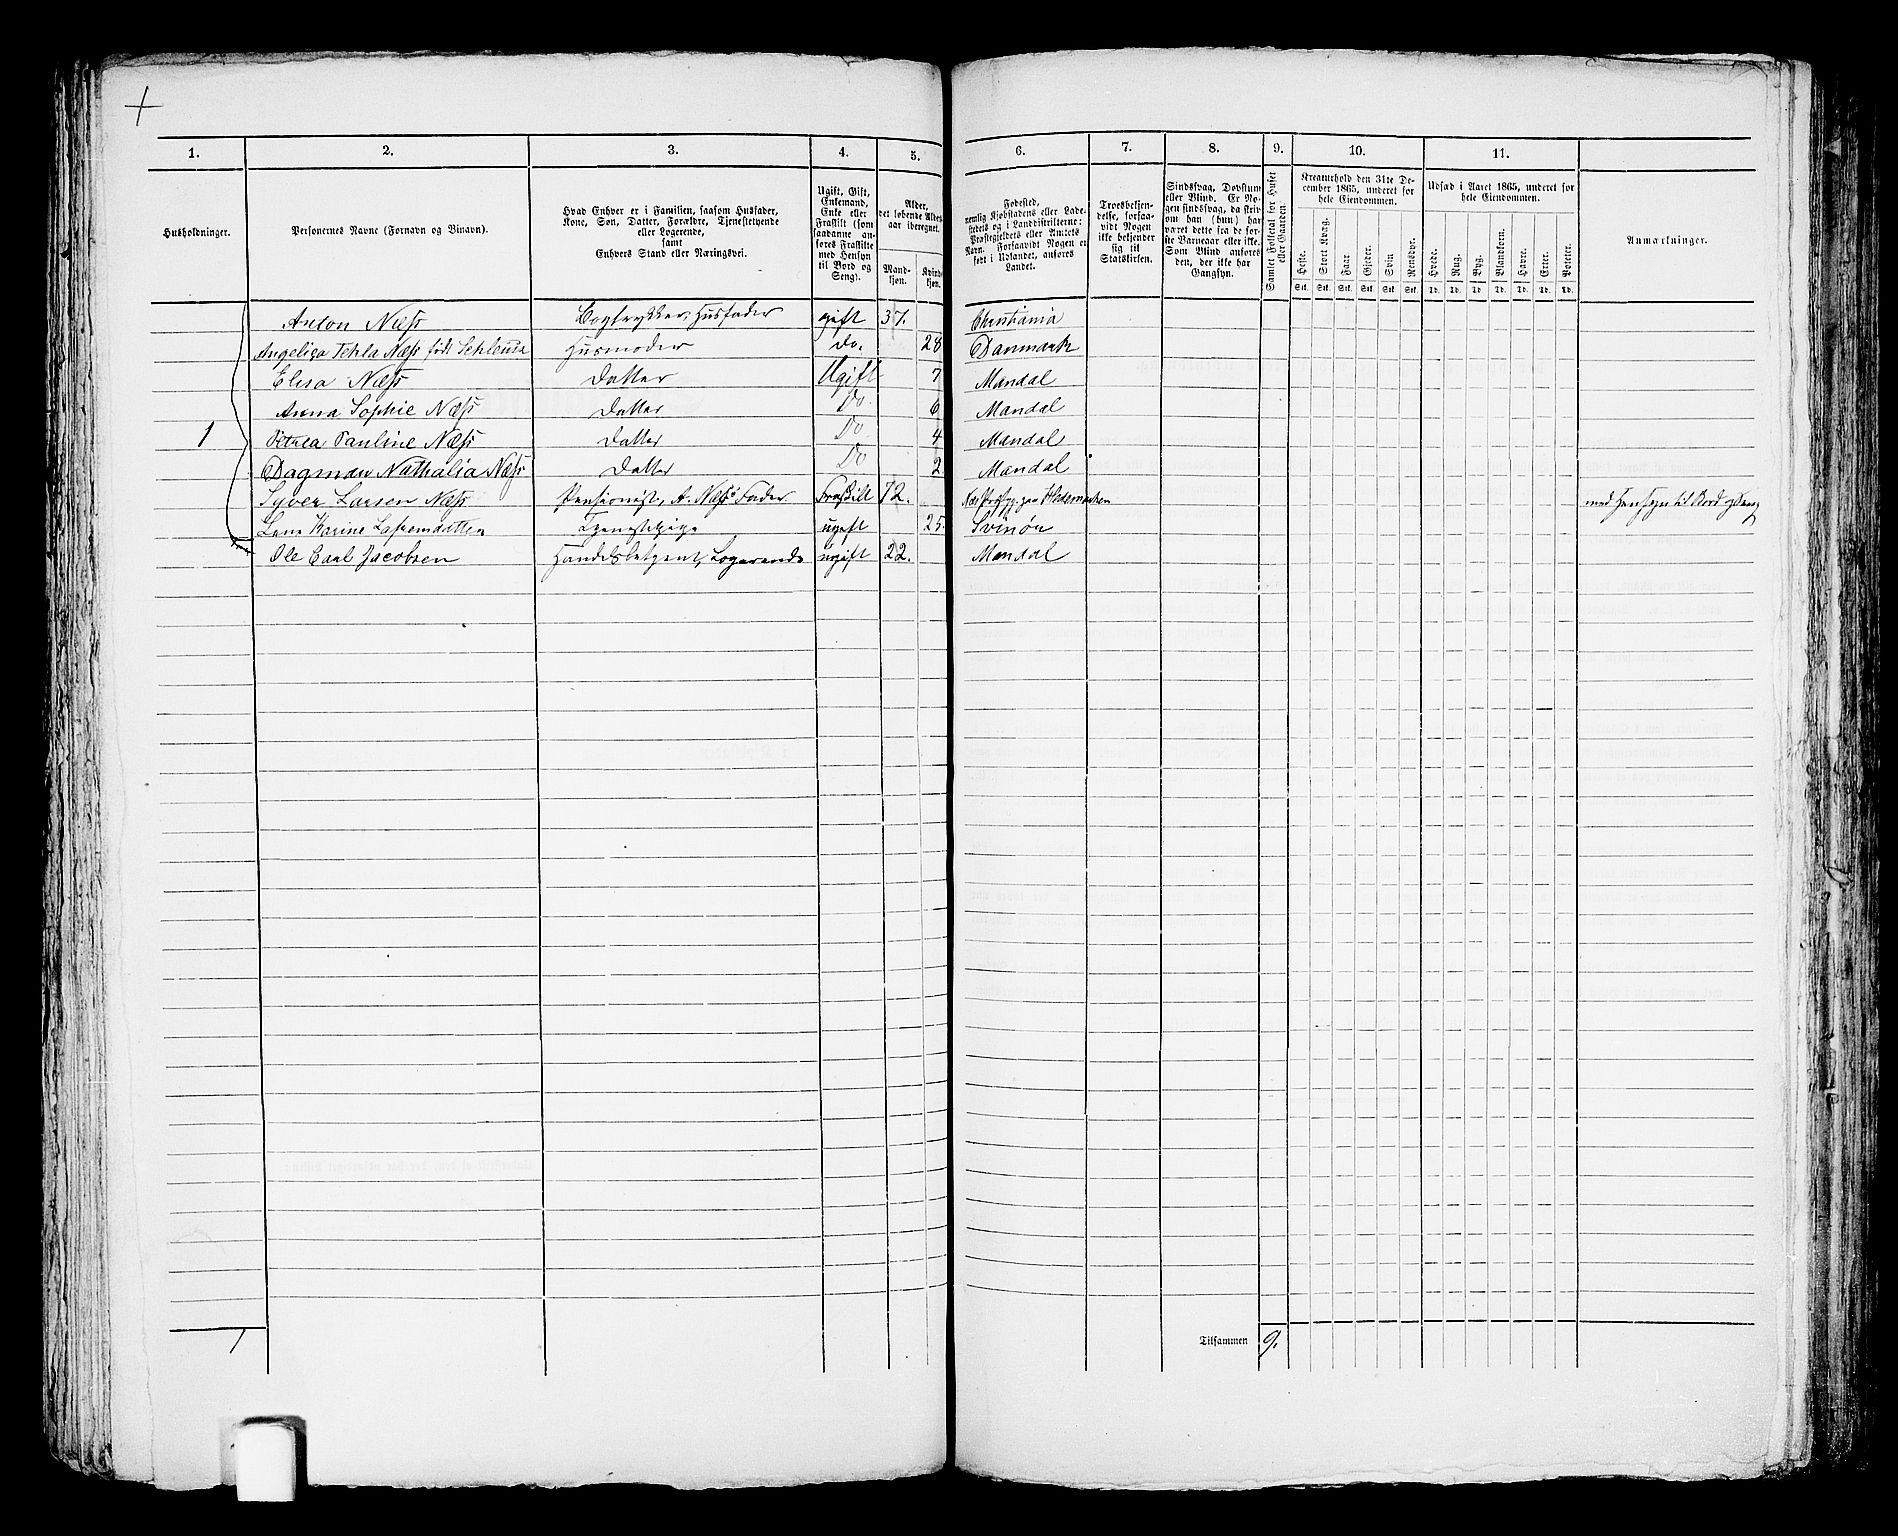 +
1. 2. 3. 4. 5. 6. 7. 8. 9. 10. 11.
Husholdninger.
Personernes Navne (Fornavn og Binavn).
Hvad Enhver er i Familien, saasom Husfader,
Kone, Søn, Datter, Forældre, Tjenestetyende
eller Logerende,
samt
Enhvers Stand eller Næringsvei.
Ugift, Gift,
Enkemand,
Enke eller
Fraskilt (som
saadanne an-
føres Fraskilte
med Hensyn
til Bord og
Seng).
Alder,
det løbende Alders-
aar iberegnet.
Mand-
kjøn.
Kvinde-
kjøn.
Fødested,
nemlig Kjøbstadens eller Lade-
stedets og i Landdistrikterne:
Præstegjeldets eller Amtets
Navn. Forsaavidt Nogen er
født i Udlandet, anføres
Landet.
Troesbekjen-
delse, forsaa-
vidt Nogen
ikke bekjender
sig til
Statskirken.
Sindssvag, Døvstum
eller Blind. Er No-
gen sindssvag, da skriv
om han (hun) har
været dette fra de før-
ste Barneaar eller ikke.
Som Blind anføres
den, der ikke har
Gangsyn.
Samlet Folketal for Huset
eller Gaarden.
Kreaturhold den 31te De-
cember 1865, underet for
hele Eiendommen.
Heste. Stort Kvæg. Faar Gjeder. Svin Rensdyr.
Stk. Stk. Stk. Stk. Stk. Stk.
Udsæd i Aaret 1865, underet for
hele Eiendommen.
Hvede. Rug. Byg. Blandkorn. Havre. Erter. Poteter.
Td. Td. Td. Td. Td. Td. Td.
Anmærkninger.
Anton Næss Bogtrykker, Husfader gift 37. Christiania
Angelica Tekla Næss født Husmoder do. 28 Danmark
Elisa Næss Datter Ugift 7 Mandal
Anna Sophie Næss Datter Do 6 Mandal
1 Petrea Pauline Næss Datter Do 4 Mandal
Dagmar Nathalia Næss Datter Do 2 Mandal
Syver Larsen Næss Pensionist, A. Næss' Fader Fraskilt 72. Hedemarken med Hensyn til Bord og Seng
Lene Karine Tjenestepige ugift 25 Svinör
Ole Carl Jacobsen Handelsbetjent, Logerende ugift 22. Mandal
1
Tilsammen 9.